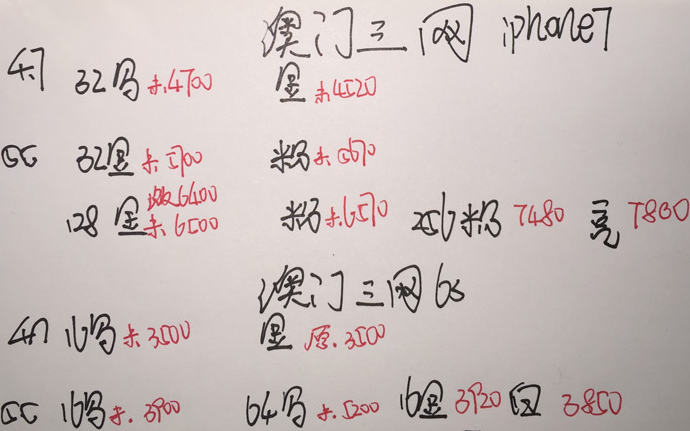 澳门三网 iphone7
4.7 32 未.4700 黑 未.4520
5.5 32黑 未.5700 粉 未.5670
激6400
128 黑 未.6500 粉 未.6570 256粉 7480 亮 7800
澳门三网 6s
4.7 16 未.3500 黑 原.3500
5.5 16 未.3900 64 未.5200 16黑 3920 3850